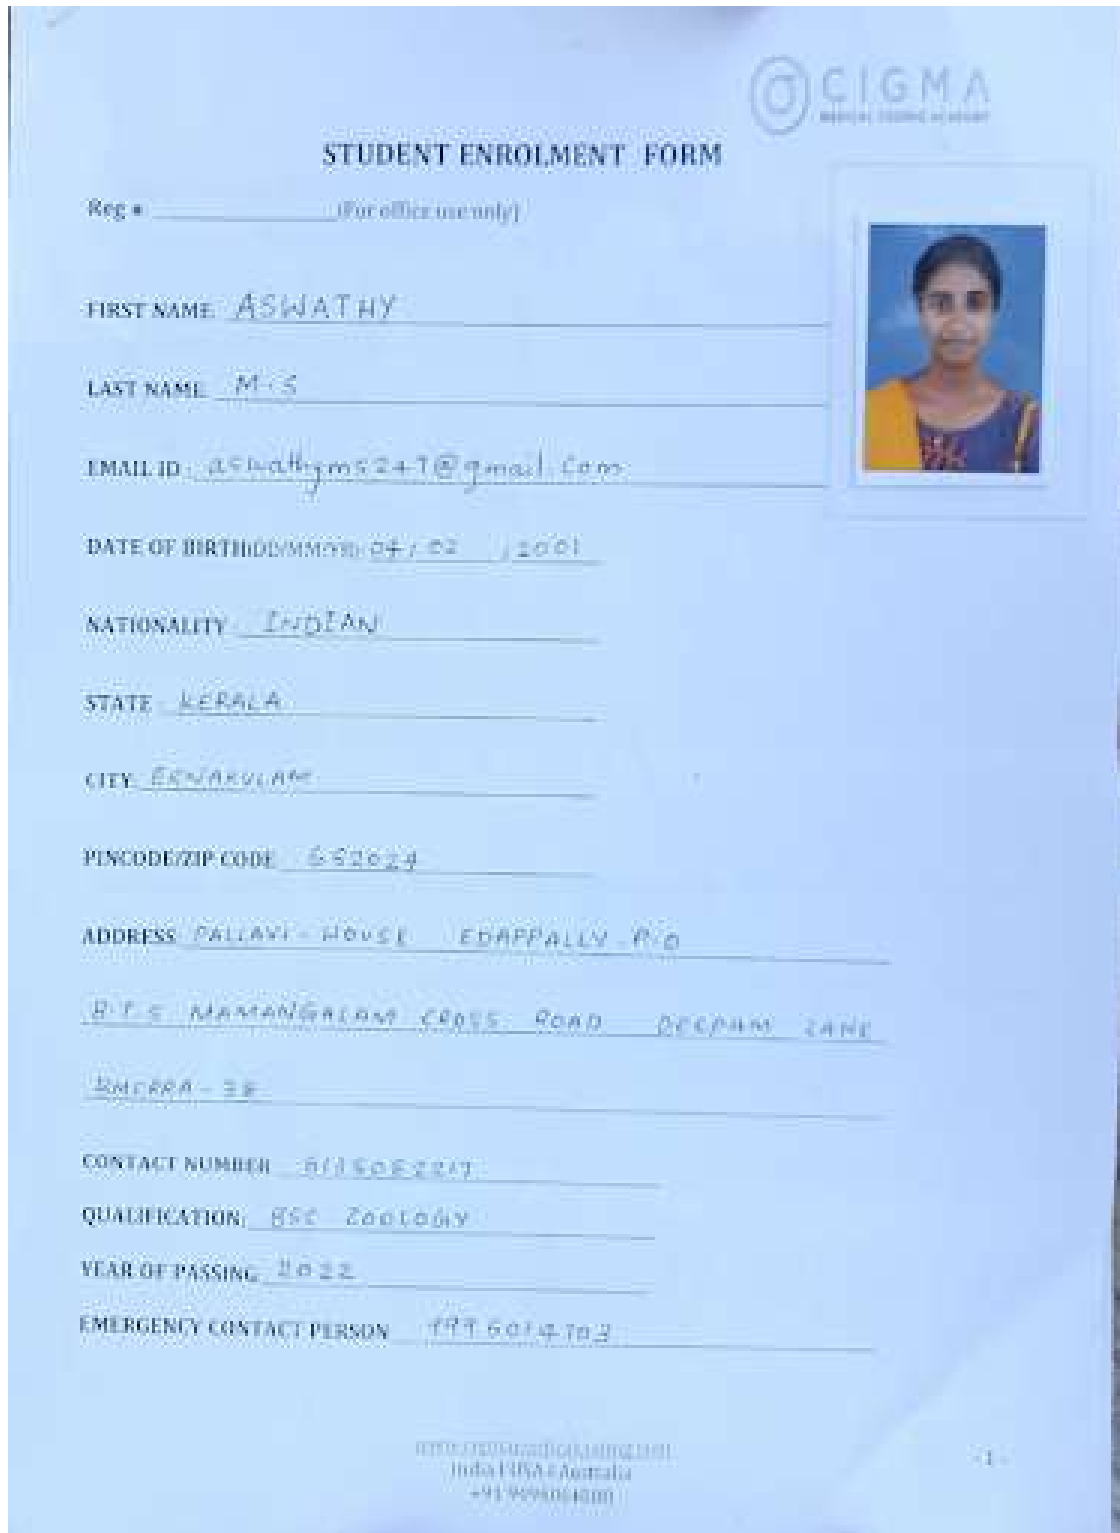 CIGMA
MEDICAL CODING ACADEMY
STUDENT ENROLMENT FORM
Reg # (For office use only)
FIRST NAME: ASWATHY
LAST NAME: M.S
EMAIL ID:
DATE OF BIRTH(DD/MM/YY): 04/02/2001
NATIONALITY: INDIAN
STATE: KERALA
CITY: ERNAKULAM
PINCODE/ZIP CODE: 682024
ADDRESS: PALLAVI - HOUSE EDAPPALLY P.O
B.T.S MAMANGALAM CROSS ROAD DEEPAM LANE
CONTACT NUMBER
QUALIFICATION: BSC ZOOLOGY
YEAR OF PASSING: 2022
EMERGENCY CONTACT PERSON
India I USA I Australia
- 1 -